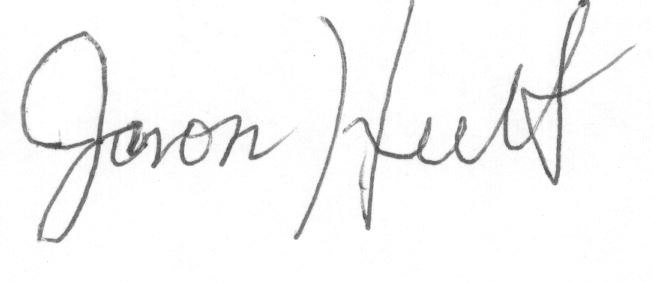 Jason Hult